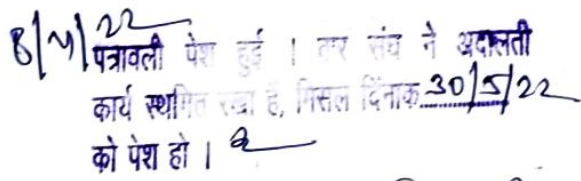 8/4/22
पत्रावली पेश हुई । बार संघ ने अदालती
कार्य स्थगित रखा है, मिसल दिनाक 30/5/22
को पेश हो ।